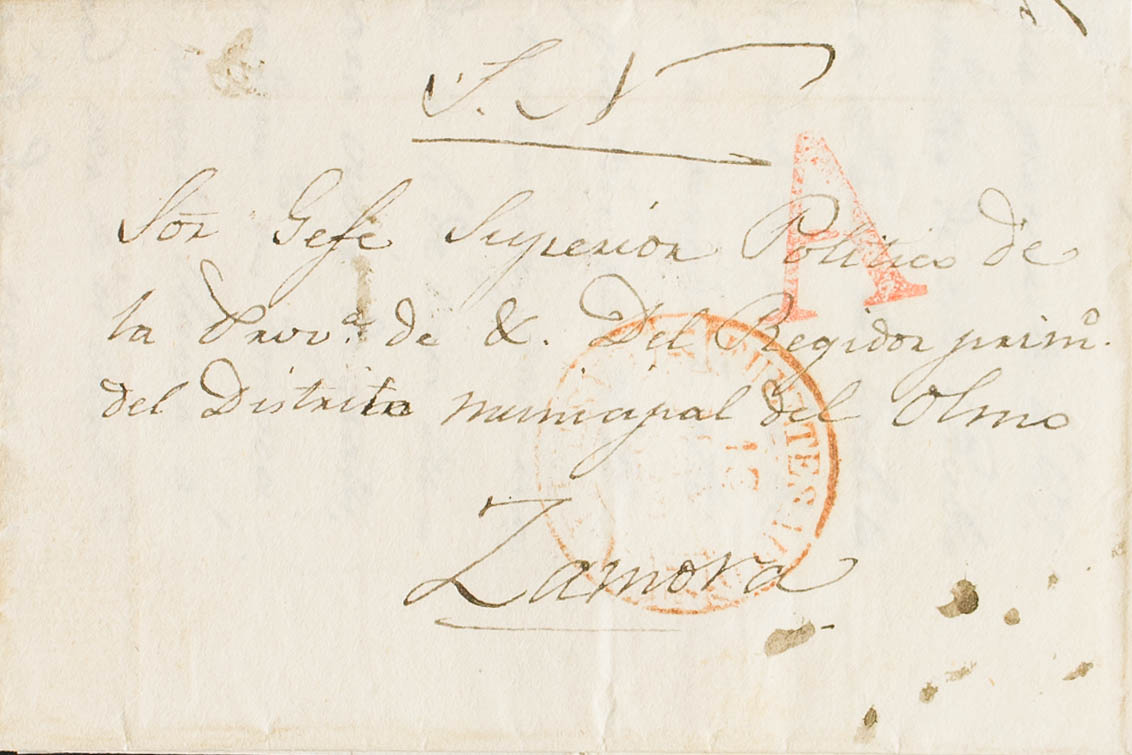 S. N
A
Sor Gefe Superior Politico de
la Prova. de &. Del Regidor primo.
del Distrito municipal del Olmo
Zamora